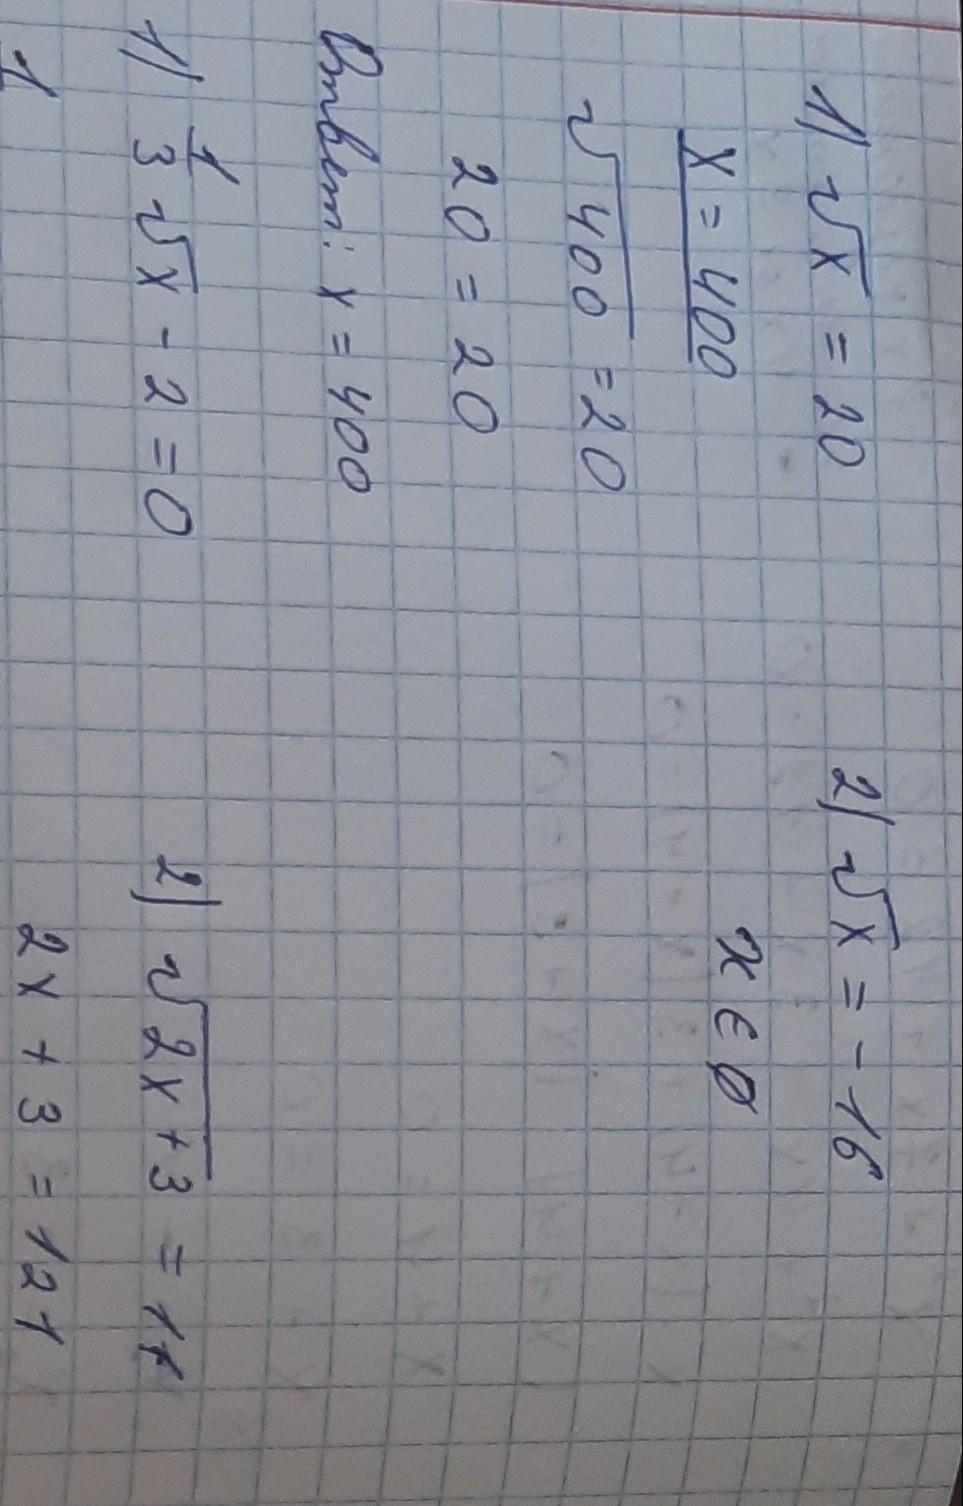 1) √x = 20
x = 400
√400 = 20
20 = 20
Ответ: x = 400
2) √x = -16
x ∈ ∅
1) 1/3 √x - 2 = 0
1
2) √2x + 3 = 11
2x + 3 = 121